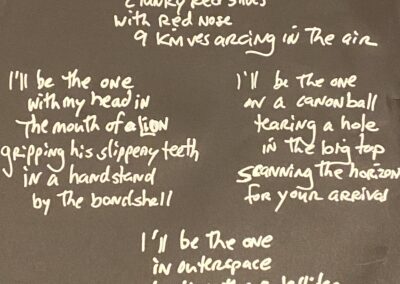 clunky Red shoes
with Red nose
9 knives arcing in the air
I'll be the one
with my head in
The mouth of a LION
gripping his slippery teeth
in a handstand
by the bandshell
I'll be the one
on a canonball
tearing a hole
in the big top
scanning the horizon
for your arrival
I'll be the one
in outerspace